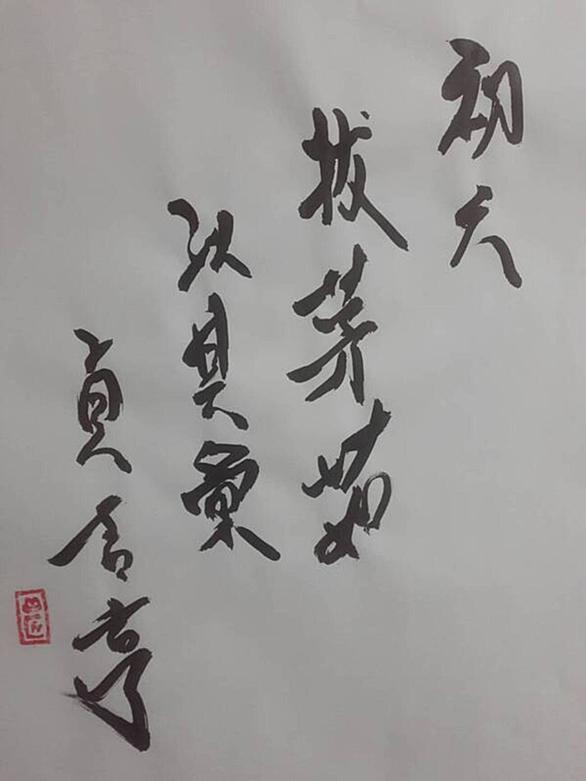 初六
拔茅茹
以其彙
貞吉亨